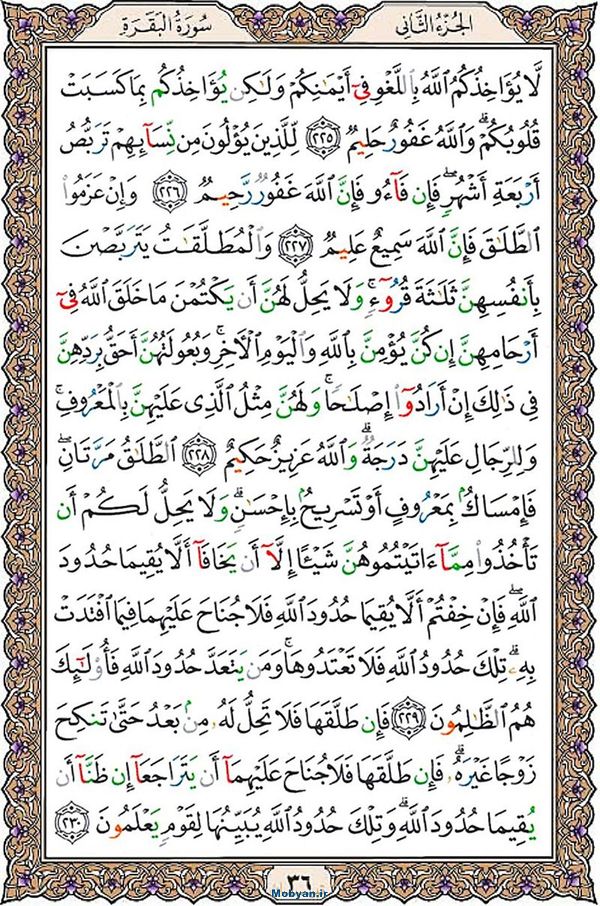 الجُزءُ الثَّانِي
سُورَةُ البَقَرَةِ
لَّا يُؤَاخِذُكُمُ ٱللَّهُ بِٱللَّغۡوِ فِيٓ أَيۡمَٰنِكُمۡ وَلَٰكِن يُؤَاخِذُكُم بِمَا كَسَبَتۡ
قُلُوبُكُمۡۗ وَٱللَّهُ غَفُورٌ حَلِيمٞ ٢٢٥ لِّلَّذِينَ يُؤۡلُونَ مِن نِّسَآئِهِمۡ تَرَبُّصُ
أَرۡبَعَةِ أَشۡهُرٖۖ فَإِن فَآءُو فَإِنَّ ٱللَّهَ غَفُورٞ رَّحِيمٞ ٢٢٦ وَإِنۡ عَزَمُواْ
ٱلطَّلَٰقَ فَإِنَّ ٱللَّهَ سَمِيعٌ عَلِيمٞ ٢٢٧ وَٱلۡمُطَلَّقَٰتُ يَتَرَبَّصۡنَ
بِأَنفُسِهِنَّ ثَلَٰثَةَ قُرُوٓءٖۚ وَلَا يَحِلُّ لَهُنَّ أَن يَكۡتُمۡنَ مَا خَلَقَ ٱللَّهُ فِيٓ
أَرۡحَامِهِنَّ إِن كُنَّ يُؤۡمِنَّ بِٱللَّهِ وَٱلۡيَوۡمِ ٱلۡأٓخِرِۚ وَبُعُولَتُهُنَّ أَحَقُّ بِرَدِّهِنَّ
فِي ذَٰلِكَ إِنۡ أَرَادُوٓاْ إِصۡلَٰحٗاۚ وَلَهُنَّ مِثۡلُ ٱلَّذِي عَلَيۡهِنَّ بِٱلۡمَعۡرُوفِۚ
وَلِلرِّجَالِ عَلَيۡهِنَّ دَرَجَةٞۗ وَٱللَّهُ عَزِيزٌ حَكِيمٌ ٢٢٨ ٱلطَّلَٰقُ مَرَّتَانِۖ
فَإِمۡسَاكُۢ بِمَعۡرُوفٍ أَوۡ تَسۡرِيحُۢ بِإِحۡسَٰنٖۗ وَلَا يَحِلُّ لَكُمۡ أَن
تَأۡخُذُواْ مِمَّآ ءَاتَيۡتُمُوهُنَّ شَيۡـًٔا إِلَّآ أَن يَخَافَآ أَلَّا يُقِيمَا حُدُودَ
ٱللَّهِۖ فَإِنۡ خِفۡتُمۡ أَلَّا يُقِيمَا حُدُودَ ٱللَّهِ فَلَا جُنَاحَ عَلَيۡهِمَا فِيمَا ٱفۡتَدَتۡ
بِهِۦۗ تِلۡكَ حُدُودُ ٱللَّهِ فَلَا تَعۡتَدُوهَاۚ وَمَن يَتَعَدَّ حُدُودَ ٱللَّهِ فَأُوْلَٰٓئِكَ
هُمُ ٱلظَّٰلِمُونَ ٢٢٩ فَإِن طَلَّقَهَا فَلَا تَحِلُّ لَهُۥ مِنۢ بَعۡدُ حَتَّىٰ تَنكِحَ
زَوۡجًا غَيۡرَهُۥۗ فَإِن طَلَّقَهَا فَلَا جُنَاحَ عَلَيۡهِمَآ أَن يَتَرَاجَعَآ إِن ظَنَّآ أَن
يُقِيمَا حُدُودَ ٱللَّهِۗ وَتِلۡكَ حُدُودُ ٱللَّهِ يُبَيِّنُهَا لِقَوۡمٖ يَعۡلَمُونَ ٢٣٠
٣٦
Mobyan.ir